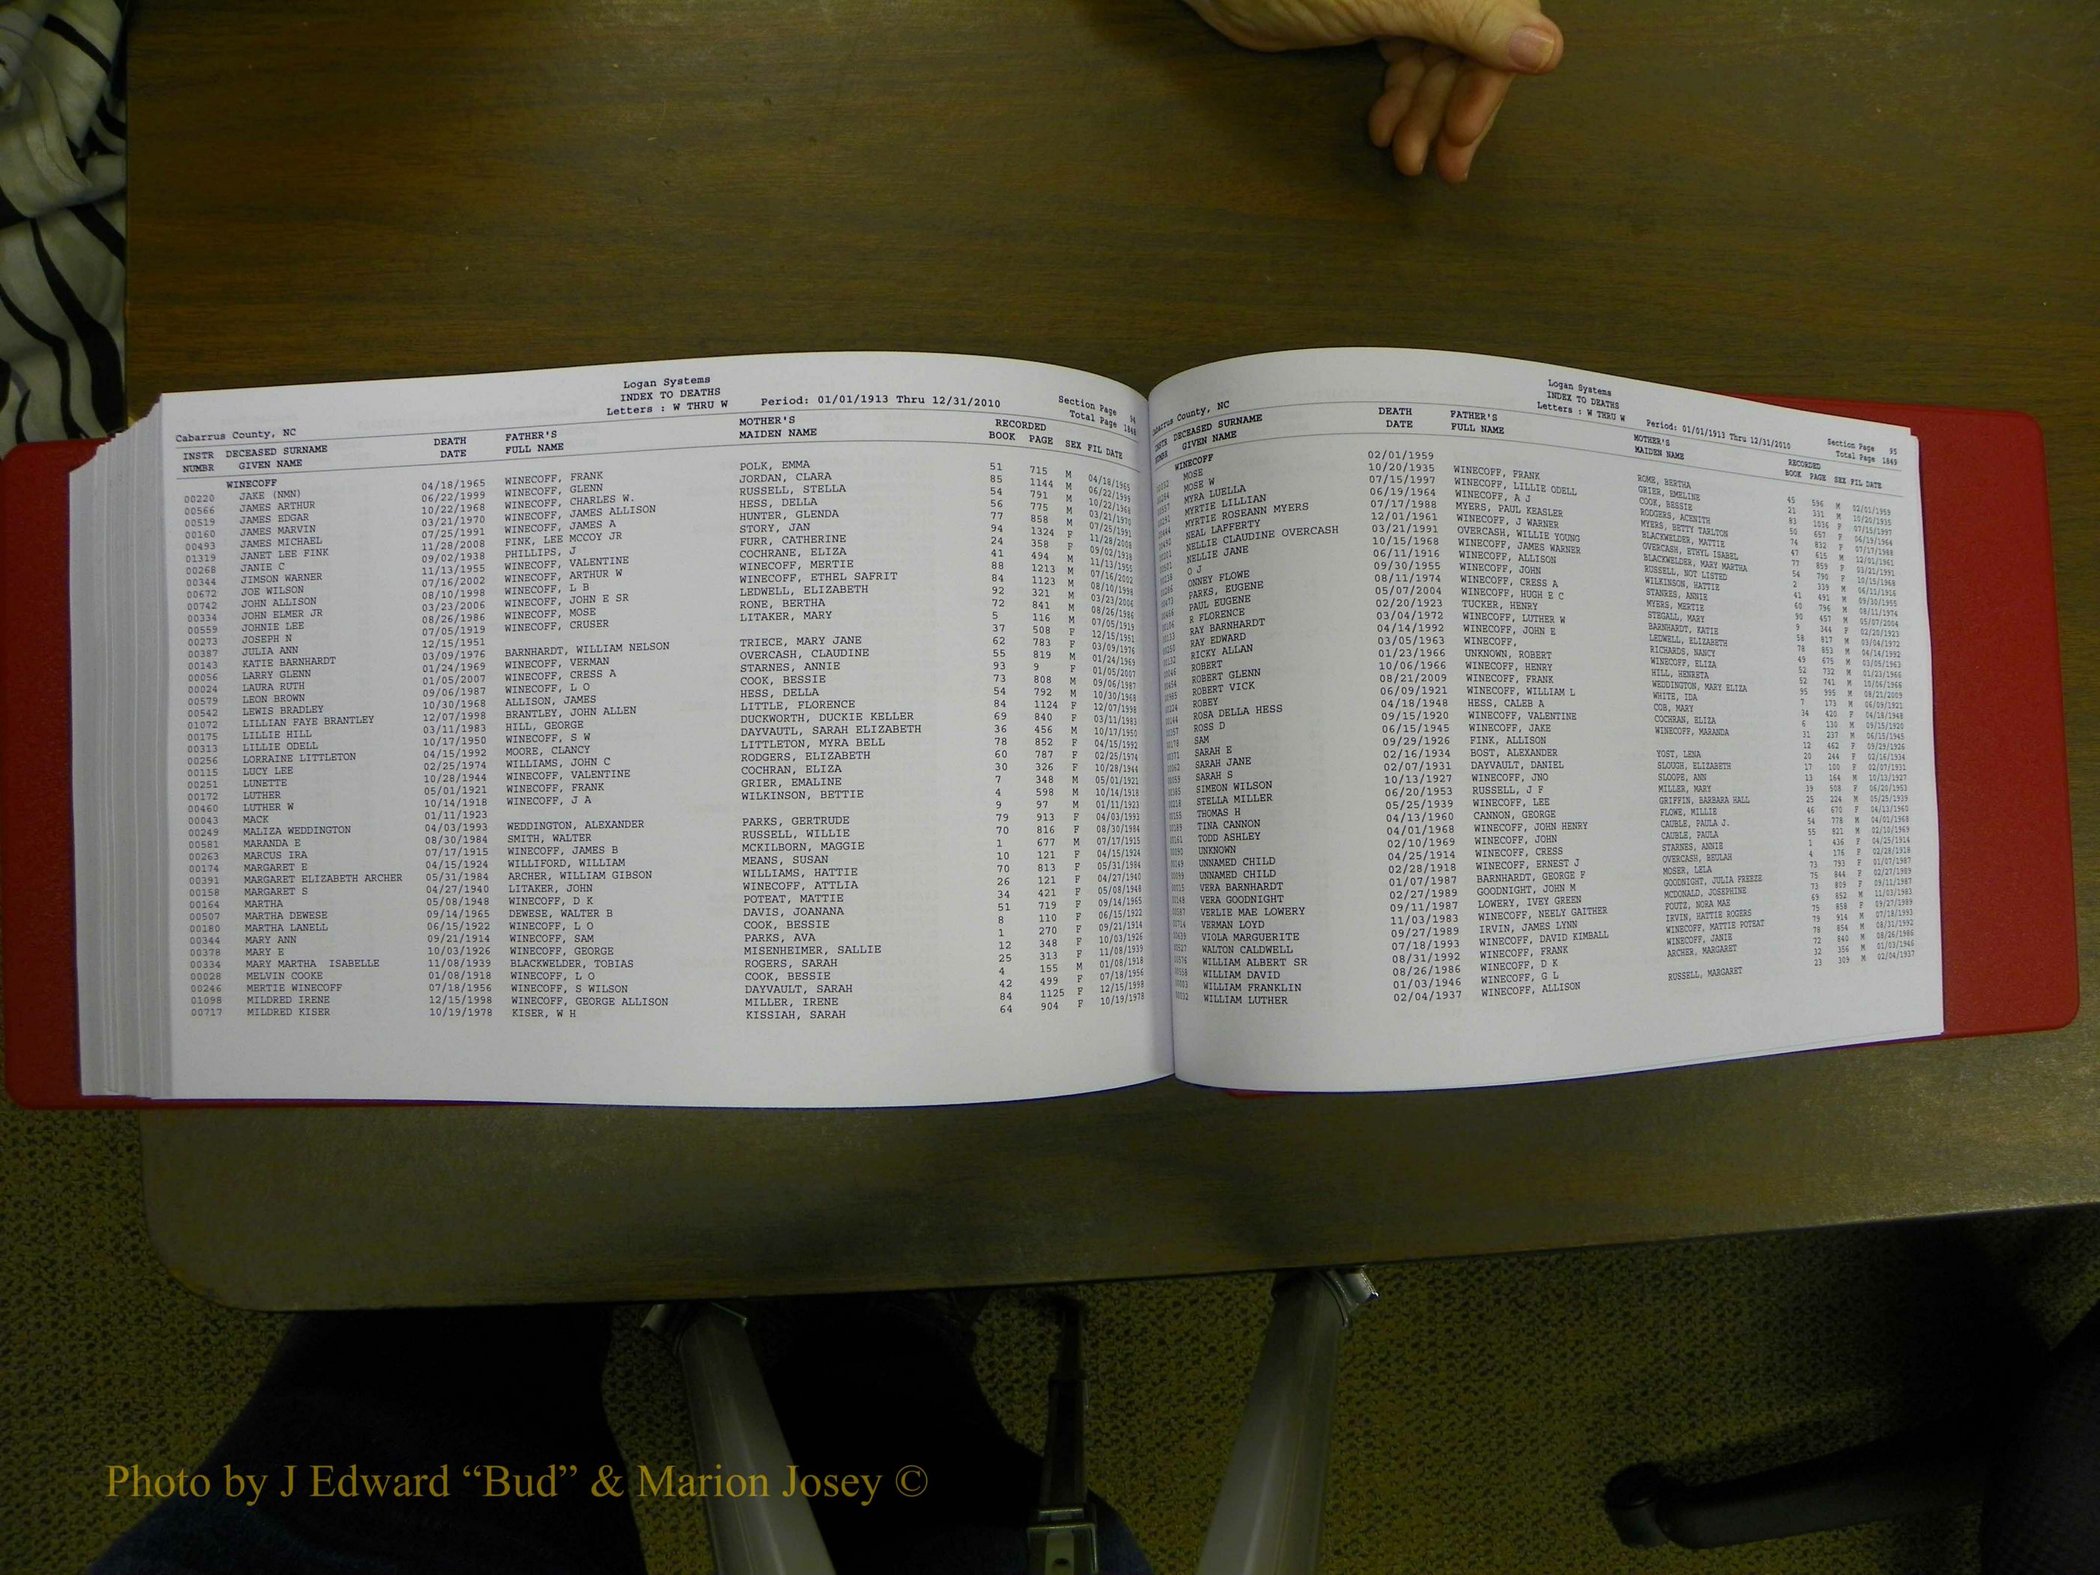 Logan Systems
INDEX TO DEATHS
Letters : W THRU W Period: 01/01/1913 Thru 12/31/2010
Section Page 94
Total Page 1848
Cabarrus County, NC
INSTR DECEASED SURNAME DEATH FATHER'S MOTHER'S RECORDED
NUMBR GIVEN NAME DATE FULL NAME MAIDEN NAME BOOK PAGE SEX FIL DATE
WINECOFF
00220 JAKE (NMN) 04/18/1965 WINECOFF, FRANK POLK, EMMA 51 715 M 04/18/1965
00566 JAMES ARTHUR 06/22/1999 WINECOFF, GLENN JORDAN, CLARA 85 1144 M 06/22/1999
00519 JAMES EDGAR 10/22/1968 WINECOFF, CHARLES W. RUSSELL, STELLA 54 791 M 10/22/1968
00160 JAMES MARVIN 03/21/1970 WINECOFF, JAMES ALLISON HESS, DELLA 56 775 M 03/21/1970
00493 JAMES MICHAEL 07/25/1991 WINECOFF, JAMES A HUNTER, GLENDA 77 858 M 07/25/1991
01319 JANET LEE FINK 11/28/2008 FINK, LEE MCCOY JR STORY, JAN 94 1324 F 11/28/2008
00268 JANIE C 09/02/1938 PHILLIPS, J FURR, CATHERINE 24 358 F 09/02/1938
00344 JIMSON WARNER 11/13/1955 WINECOFF, VALENTINE COCHRANE, ELIZA 41 494 M 11/13/1955
00672 JOE WILSON 07/16/2002 WINECOFF, ARTHUR W WINECOFF, MERTIE 88 1213 M 07/16/2002
00742 JOHN ALLISON 08/10/1998 WINECOFF, L B WINECOFF, ETHEL SAFRIT 84 1123 M 08/10/1998
00334 JOHN ELMER JR 03/23/2006 WINECOFF, JOHN E SR LEDWELL, ELIZABETH 92 321 M 03/23/2006
00559 JOHNIE LEE 08/26/1986 WINECOFF, MOSE RONE, BERTHA 72 841 M 08/26/1986
00273 JOSEPH N 07/05/1919 WINECOFF, CRUSER LITAKER, MARY 5 116 M 07/05/1919
00387 JULIA ANN 12/15/1951 37 508 F 12/15/1951
00143 KATIE BARNHARDT 03/09/1976 BARNHARDT, WILLIAM NELSON TRIECE, MARY JANE 62 783 F 03/09/1976
00056 LARRY GLENN 01/24/1969 WINECOFF, VERMAN OVERCASH, CLAUDINE 55 819 M 01/24/1969
00024 LAURA RUTH 01/05/2007 WINECOFF, CRESS A STARNES, ANNIE 93 9 F 01/05/2007
00579 LEON BROWN 09/06/1987 WINECOFF, L O COOK, BESSIE 73 808 M 09/06/1987
00542 LEWIS BRADLEY 10/30/1968 ALLISON, JAMES HESS, DELLA 54 792 M 10/30/1968
01072 LILLIAN FAYE BRANTLEY 12/07/1998 BRANTLEY, JOHN ALLEN LITTLE, FLORENCE 84 1124 F 12/07/1998
00175 LILLIE HILL 03/11/1983 HILL, GEORGE DUCKWORTH, DUCKIE KELLER 69 840 F 03/11/1983
00313 LILLIE ODELL 10/17/1950 WINECOFF, S W DAYVAUTL, SARAH ELIZABETH 36 456 M 10/17/1950
00256 LORRAINE LITTLETON 04/15/1992 MOORE, CLANCY LITTLETON, MYRA BELL 78 852 F 04/15/1992
00115 LUCY LEE 02/25/1974 WILLIAMS, JOHN C RODGERS, ELIZABETH 60 787 F 02/25/1974
00251 LUNETTE 10/28/1944 WINECOFF, VALENTINE COCHRAN, ELIZA 30 326 F 10/28/1944
00172 LUTHER 05/01/1921 WINECOFF, FRANK GRIER, EMALINE 7 348 M 05/01/1921
00460 LUTHER W 10/14/1918 WINECOFF, J A WILKINSON, BETTIE 4 598 M 10/14/1918
00043 MACK 01/11/1923 9 97 M 01/11/1923
00249 MALIZA WEDDINGTON 04/03/1993 WEDDINGTON, ALEXANDER PARKS, GERTRUDE 79 913 F 04/03/1993
00581 MARANDA E 08/30/1984 SMITH, WALTER RUSSELL, WILLIE 70 816 F 08/30/1984
00263 MARCUS IRA 07/17/1915 WINECOFF, JAMES B MCKILBORN, MAGGIE 1 677 M 07/17/1915
00174 MARGARET E 04/15/1924 WILLIFORD, WILLIAM MEANS, SUSAN 10 121 F 04/15/1924
00391 MARGARET ELIZABETH ARCHER 05/31/1984 ARCHER, WILLIAM GIBSON WILLIAMS, HATTIE 70 813 F 05/31/1984
00158 MARGARET S 04/27/1940 LITAKER, JOHN WINECOFF, ATTLIA 26 121 F 04/27/1940
00164 MARTHA 05/08/1948 WINECOFF, D K POTEAT, MATTIE 34 421 F 05/08/1948
00507 MARTHA DEWESE 09/14/1965 DEWESE, WALTER B DAVIS, JOANANA 51 719 F 09/14/1965
00180 MARTHA LANELL 06/15/1922 WINECOFF, L O COOK, BESSIE 8 110 F 06/15/1922
00344 MARY ANN 09/21/1914 WINECOFF, SAM PARKS, AVA 1 270 F 09/21/1914
00378 MARY E 10/03/1926 WINECOFF, GEORGE MISENHEIMER, SALLIE 12 348 F 10/03/1926
00334 MARY MARTHA ISABELLE 11/08/1939 BLACKWELDER, TOBIAS ROGERS, SARAH 25 313 F 11/08/1939
00028 MELVIN COOKE 01/08/1918 WINECOFF, L O COOK, BESSIE 4 155 M 01/08/1918
00246 MERTIE WINECOFF 07/18/1956 WINECOFF, S WILSON DAYVAULT, SARAH 42 499 F 07/18/1956
01098 MILDRED IRENE 12/15/1998 WINECOFF, GEORGE ALLISON MILLER, IRENE 84 1125 F 12/15/1998
00717 MILDRED KISER 10/19/1978 KISER, W H KISSIAH, SARAH 64 904 F 10/19/1978
Logan Systems
INDEX TO DEATHS
Letters : W THRU W Period: 01/01/1913 Thru 12/31/2010
Section Page 95
Total Page 1849
Cabarrus County, NC
INSTR DECEASED SURNAME DEATH FATHER'S MOTHER'S RECORDED
NUMBR GIVEN NAME DATE FULL NAME MAIDEN NAME BOOK PAGE SEX FIL DATE
WINECOFF
MOSE 02/01/1959 ROME, BERTHA 45 596 M 02/01/1959
MOSE W 10/20/1935 WINECOFF, FRANK GRIER, EMELINE 21 331 M 10/20/1935
MYRA LUELLA 07/15/1997 WINECOFF, LILLIE ODELL COOK, BESSIE 83 1036 F 07/15/1997
MYRTIE LILLIAN 06/19/1964 WINECOFF, A J RODGERS, ACENITH 50 657 F 06/19/1964
MYRTIE ROSEANN MYERS 07/17/1988 MYERS, PAUL KEASLER MYERS, BETTY TARLTON 74 832 F 07/17/1988
NEAL LAFFERTY 12/01/1961 WINECOFF, J WARNER BLACKWELDER, MATTIE 47 615 M 12/01/1961
NELLIE CLAUDINE OVERCASH 03/21/1991 OVERCASH, WILLIE YOUNG OVERCASH, ETHYL ISABEL 77 859 F 03/21/1991
NELLIE JANE 10/15/1968 WINECOFF, JAMES WARNER BLACKWELDER, MARY MARTHA 54 790 F 10/15/1968
O J 06/11/1916 WINECOFF, ALLISON RUSSELL, NOT LISTED 2 339 M 06/11/1916
ONNEY FLOWE 09/30/1955 WINECOFF, JOHN WILKINSON, HATTIE 41 491 M 09/30/1955
PARKS, EUGENE 08/11/1974 WINECOFF, CRESS A STANRES, ANNIE 60 796 M 08/11/1974
PAUL EUGENE 05/07/2004 WINECOFF, HUGH E C MYERS, MERTIE 90 457 M 05/07/2004
R FLORENCE 02/20/1923 TUCKER, HENRY STEGALL, MARY 9 344 F 02/20/1923
RAY BARNHARDT 03/04/1972 WINECOFF, LUTHER W BARNHARDT, KATIE 58 817 M 03/04/1972
RAY EDWARD 04/14/1992 WINECOFF, JOHN E LEDWELL, ELIZABETH 78 853 M 04/14/1992
RICKY ALLAN 03/05/1963 WINECOFF, RICHARDS, NANCY 49 675 M 03/05/1963
ROBERT 01/23/1966 UNKNOWN, ROBERT WINECOFF, ELIZA 52 732 M 01/23/1966
ROBERT GLENN 10/06/1966 WINECOFF, HENRY HILL, HENRETA 52 741 M 10/06/1966
ROBERT VICK 08/21/2009 WINECOFF, FRANK WEDDINGTON, MARY ELIZA 95 995 M 08/21/2009
ROBEY 06/09/1921 WINECOFF, WILLIAM L WHITE, IDA 7 173 M 06/09/1921
ROSA DELLA HESS 04/18/1948 HESS, CALEB A COB, MARY 34 420 F 04/18/1948
ROSS D 09/15/1920 WINECOFF, VALENTINE COCHRAN, ELIZA 6 130 M 09/15/1920
SAM 06/15/1945 WINECOFF, JAKE WINECOFF, MARANDA 31 237 M 06/15/1945
SARAH E 09/29/1926 FINK, ALLISON 12 462 F 09/29/1926
SARAH JANE 02/16/1934 BOST, ALEXANDER YOST, LENA 20 244 F 02/16/1934
SARAH S 02/07/1931 DAYVAULT, DANIEL SLOUGH, ELIZABETH 17 100 F 02/07/1931
SIMEON WILSON 10/13/1927 WINECOFF, JNO SLOOPE, ANN 13 164 M 10/13/1927
STELLA MILLER 06/20/1953 RUSSELL, J F MILLER, MARY 39 508 F 06/20/1953
THOMAS H 05/25/1939 WINECOFF, LEE GRIFFIN, BARBARA HALL 25 224 M 05/25/1939
TINA CANNON 04/13/1960 CANNON, GEORGE FLOWE, MILLIE 46 670 F 04/13/1960
TODD ASHLEY 04/01/1968 WINECOFF, JOHN HENRY CAUBLE, PAULA J. 54 778 M 04/01/1968
UNKNOWN 02/10/1969 WINECOFF, JOHN CAUBLE, PAULA 55 821 M 02/10/1969
UNNAMED CHILD 04/25/1914 WINECOFF, CRESS STARNES, ANNIE 1 436 F 04/25/1914
UNNAMED CHILD 02/28/1918 WINECOFF, ERNEST J OVERCASH, BEULAH 4 176 F 02/28/1918
VERA BARNHARDT 01/07/1987 BARNHARDT, GEORGE F MOSER, LELA 73 793 F 01/07/1987
VERA GOODNIGHT 02/27/1989 GOODNIGHT, JOHN M GOODNIGHT, JULIA FREEZE 75 844 F 02/27/1989
VERLIE MAE LOWERY 09/11/1987 LOWERY, IVEY GREEN MCDONALD, JOSEPHINE 73 809 F 09/11/1987
VERMAN LOYD 11/03/1983 WINECOFF, NEELY GAITHER FOUTZ, NORA MAE 69 852 M 11/03/1983
VIOLA MARGUERITE 09/27/1989 IRVIN, JAMES LYNN IRVIN, HATTIE ROGERS 75 858 F 09/27/1989
WALTON CALDWELL 07/18/1993 WINECOFF, DAVID KIMBALL WINECOFF, MATTIE POTEAT 79 914 M 07/18/1993
WILLIAM ALBERT SR 08/31/1992 WINECOFF, FRANK WINECOFF, JANIE 78 854 M 08/31/1992
WILLIAM DAVID 08/26/1986 WINECOFF, D K ARCHER, MARGARET 72 840 M 08/26/1986
WILLIAM FRANKLIN 01/03/1946 WINECOFF, G L 32 356 M 01/03/1946
WILLIAM LUTHER 02/04/1937 WINECOFF, ALLISON RUSSELL, MARGARET 23 309 M 02/04/1937
Photo by J Edward “Bud” & Marion Josey ©